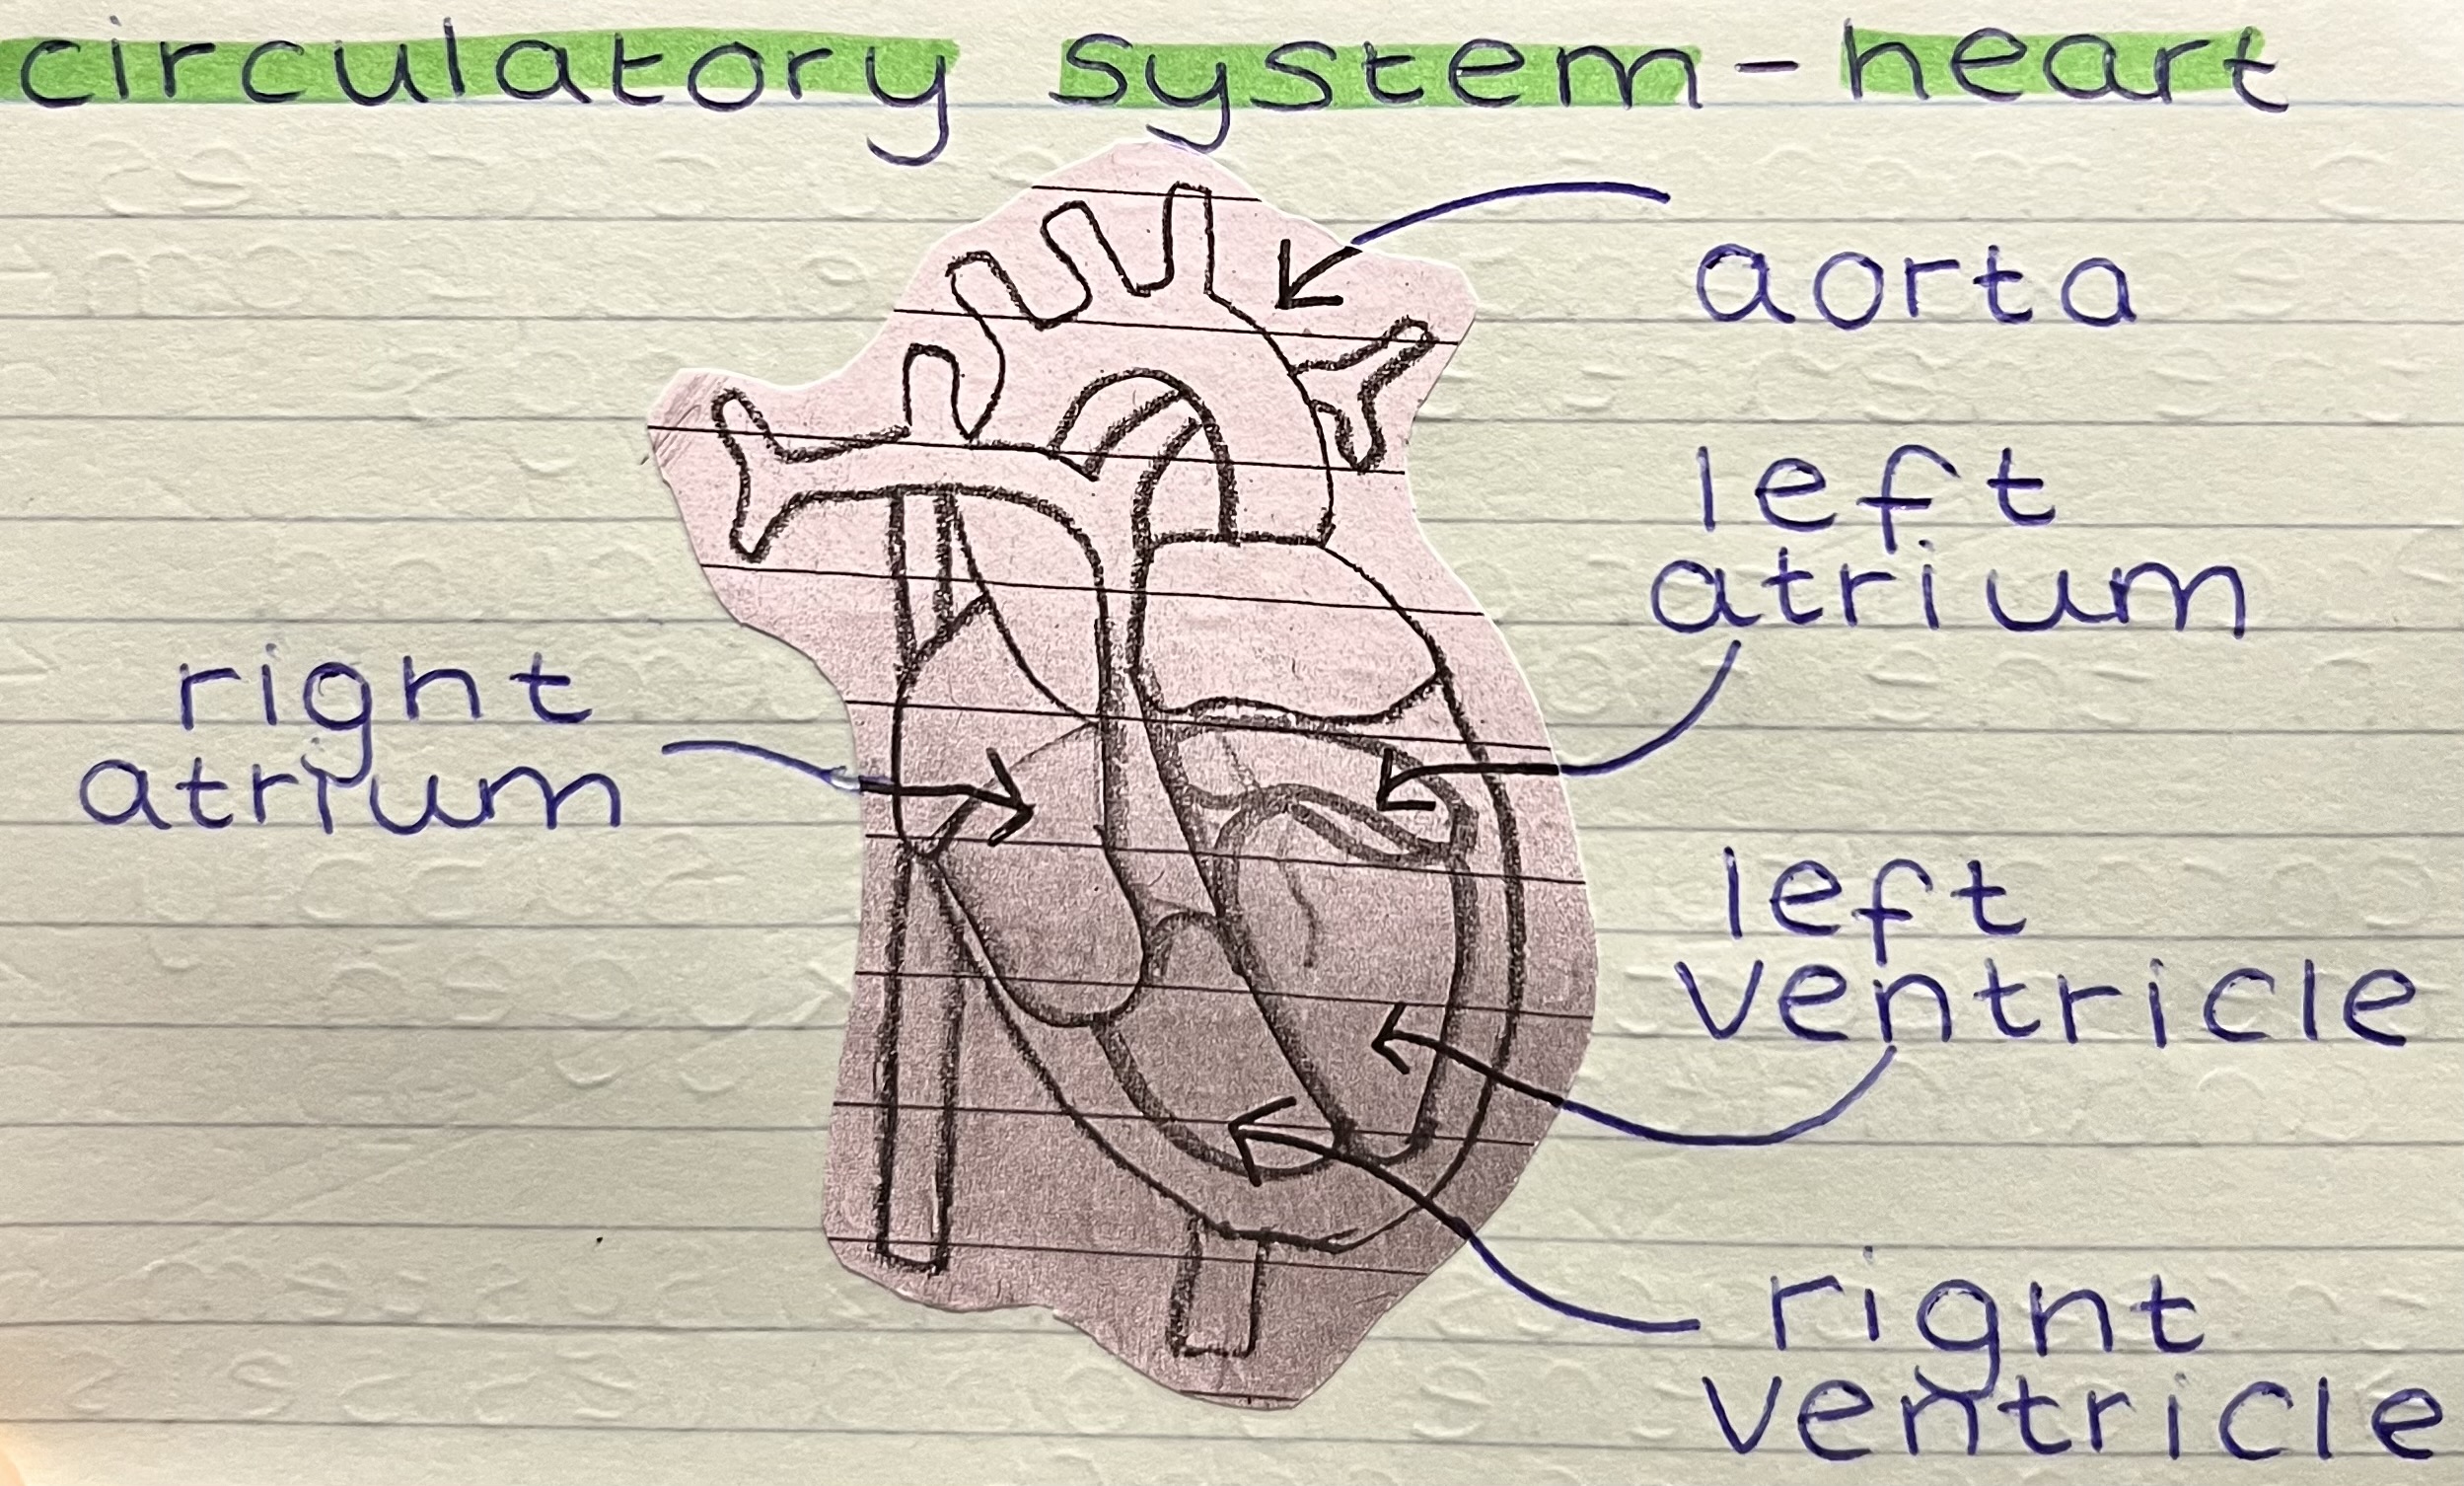 circulatory system - heart
aorta
left
atrium
right
atrium
left
ventricle
right
ventricle